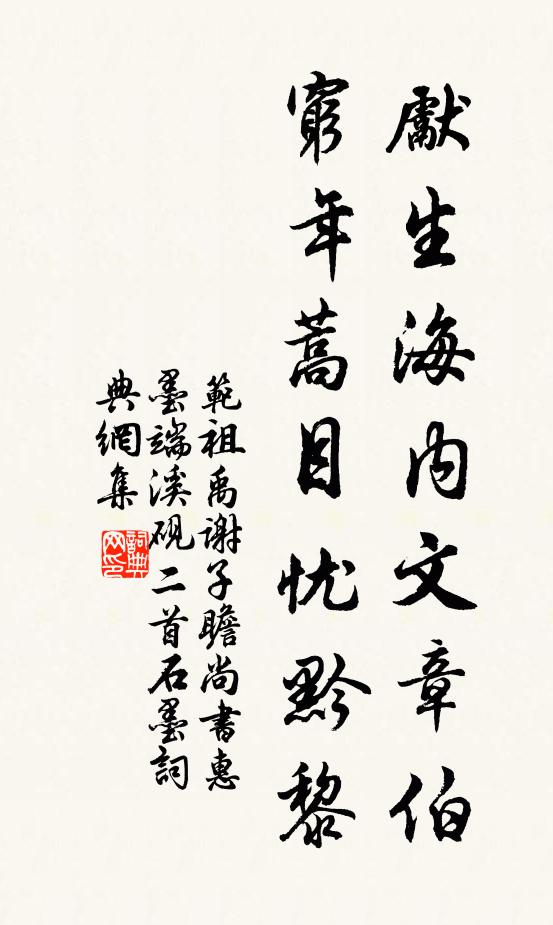 獻生海内文章伯
窮年蒿目忧黔黎
範祖禹謝子瞻尚書惠
墨端溪硯二首石墨詞
典網集
詞典网印